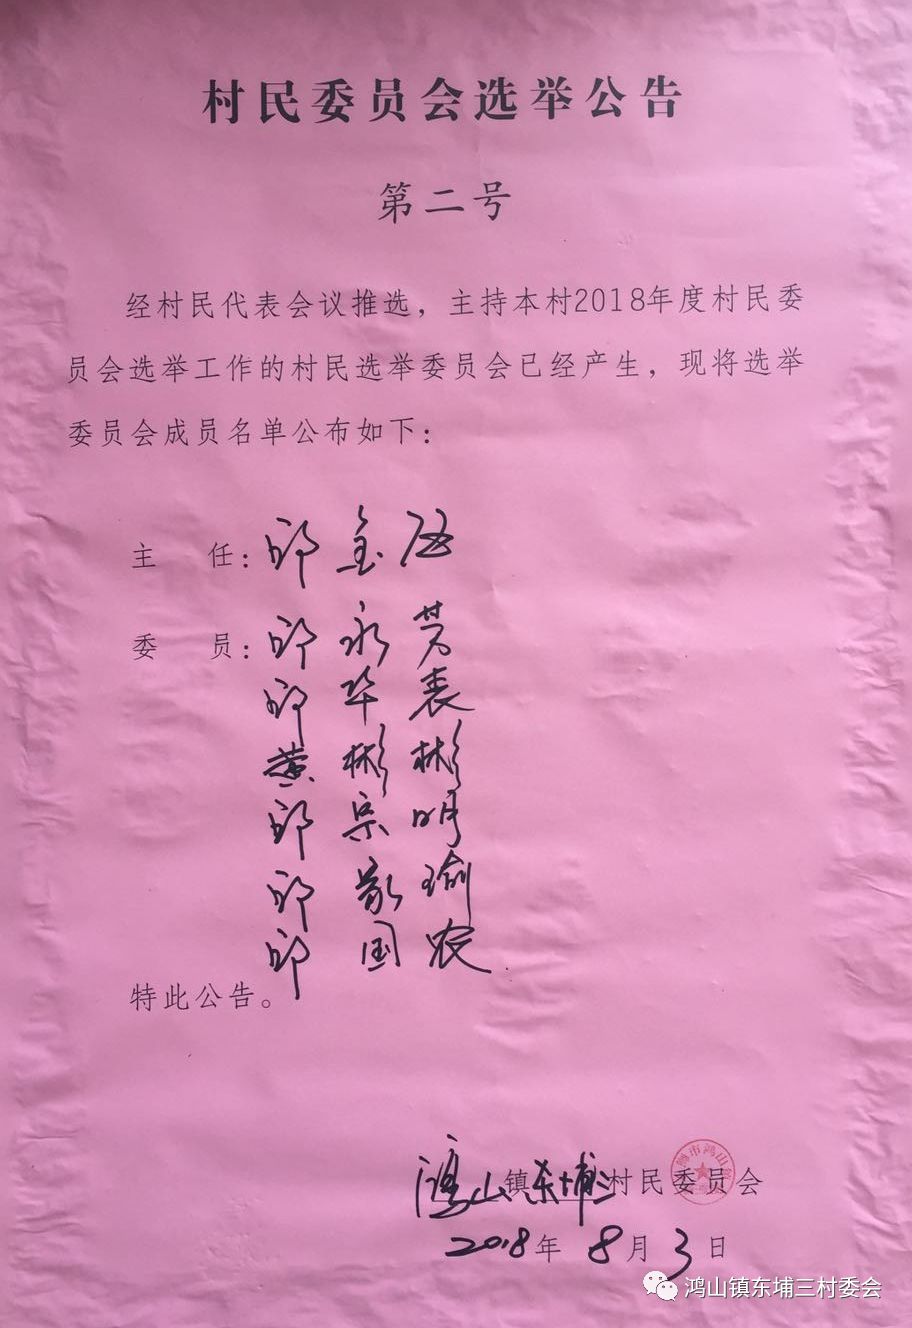 村民委员会选举公告
第二号
经村民代表会议推选，主持本村2018年度村民委
员会选举工作的村民选举委员会已经产生，现将选举
委员会成员名单公布如下：
主 任：邱金
委 员：邱永芳
邱华表
黄彬彬
邱宗明
邱家瑜
邱国农
特此公告。
鸿山镇东埔三村民委员会
2018年8月3日
鸿山镇东埔三村委会